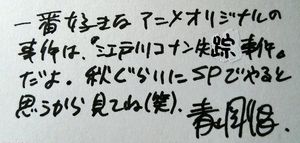 一番好きなアニメオリジナルの
事件は、『江戸川コナン失踪事件』
だよ。秋ぐらいにSPでやると
思うから見てね(笑)。青山剛昌.